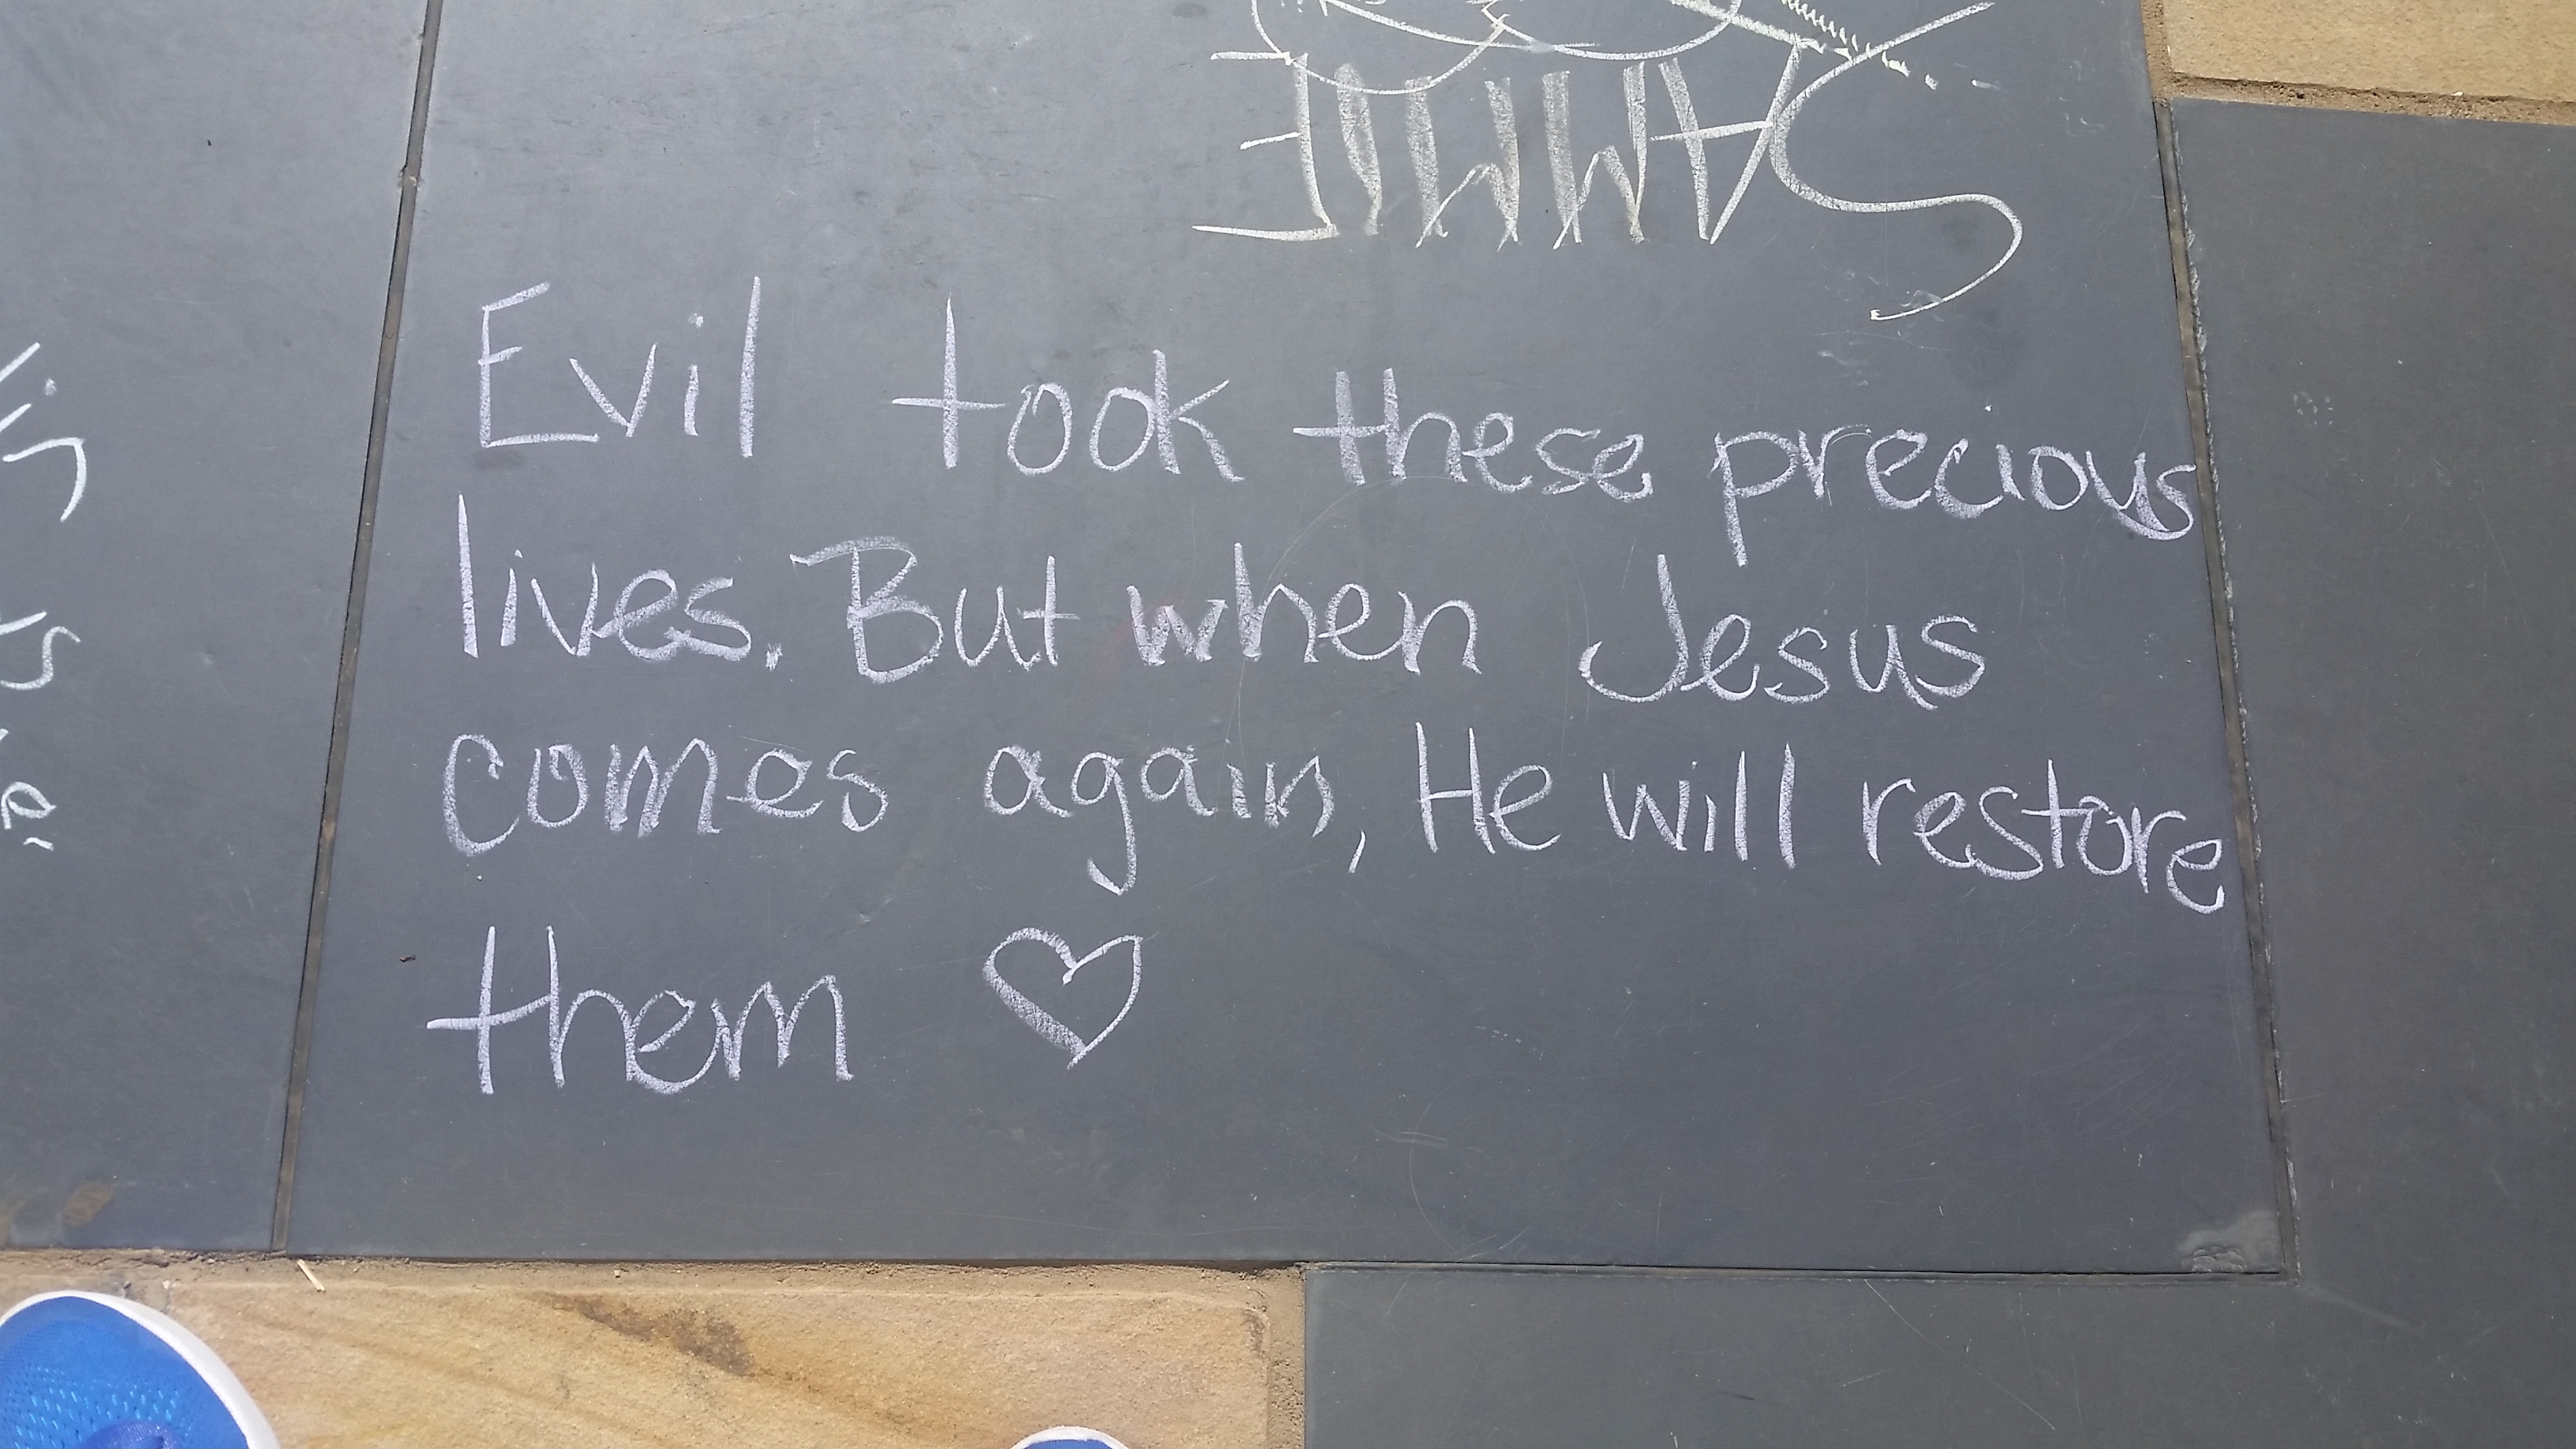 SAMMIE
Evil took these precious
lives. But when Jesus
comes again, He will restore
them ♡